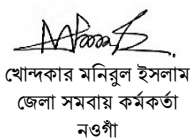 খোন্দকার মনিরুল ইসলাম
জেলা সমবায় কর্মকর্তা
নওগাঁ